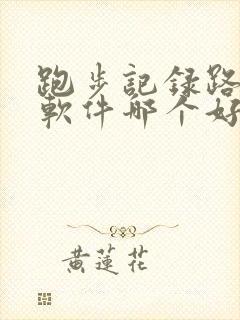 跑步記録路
軟件哪个好
黃蓮花